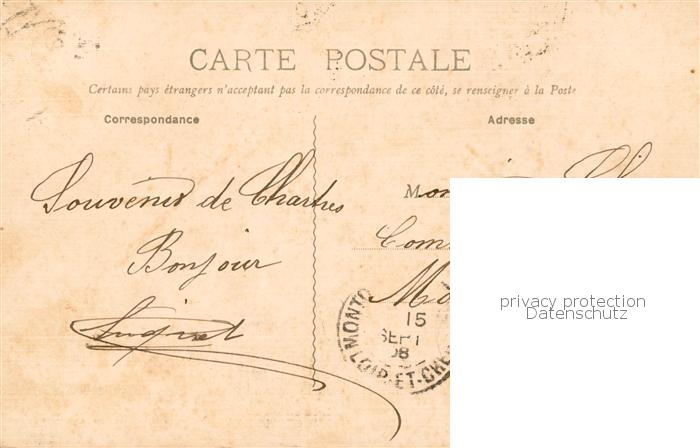 CARTE POSTALE
Certains pays étrangers n'acceptant pas la correspondance de ce côté, se renseigner à la Poste
Correspondance
Adresse
Souvenir de Chartres
Bonjour
M
Com
Mo
MONTO
15
SEPT
08
LOIR-ET-CHER
privacy protection
Datenschutz